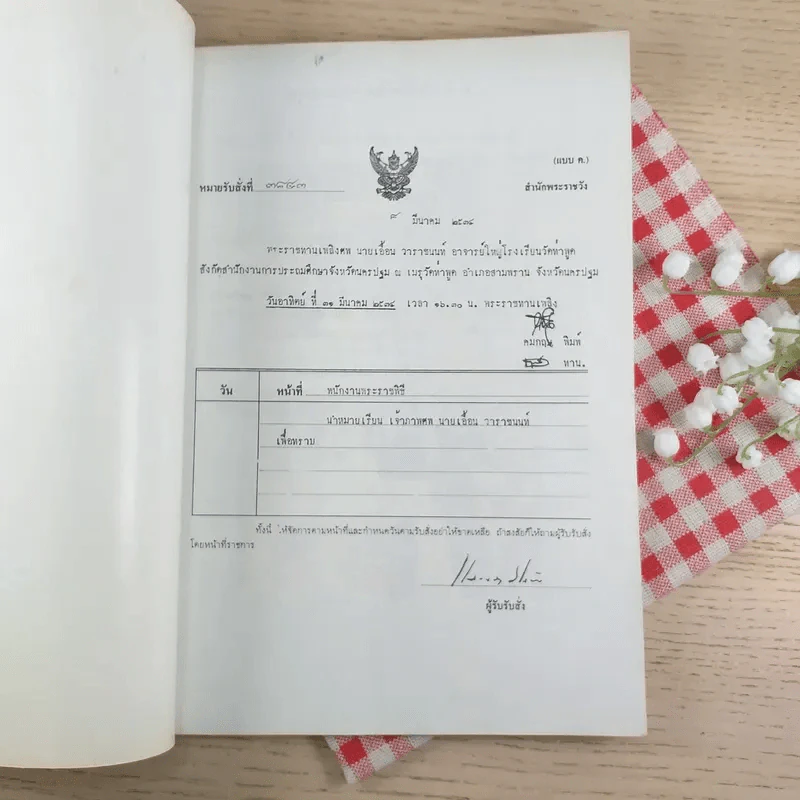 (แบบ ค.)
หมายรับสั่งที่ ๓๘๔๓
สำนักพระราชวัง
๘ มีนาคม ๒๕๓๔
พระราชทานเพลิงศพ นายเอื้อน วาราชนนท์ อาจารย์ใหญ่โรงเรียนวัดท่าพูด
สังกัดสำนักงานการประถมศึกษาจังหวัดนครปฐม ณ เมรุวัดท่าพูด อำเภอสามพราน จังหวัดนครปฐม
วันอาทิตย์ ที่ ๓๑ มีนาคม ๒๕๓๔ เวลา ๑๖.๓๐ น. พระราชทานเพลิง
คมกฤษ พิมพ์
ทาน.
วัน หน้าที่ พนักงานพระราชพิธี
นำหมายเรียน เจ้าภาพศพ นายเอื้อน วาราชนนท์
เพื่อทราบ
ทั้งนี้ ให้จัดการตามหน้าที่และกำหนดวันตามรับสั่งอย่าให้ขาดเหลือ ถ้าสงสัยก็ให้ถามผู้รับรับสั่ง
โดยหน้าที่ราชการ
ผู้รับรับสั่ง